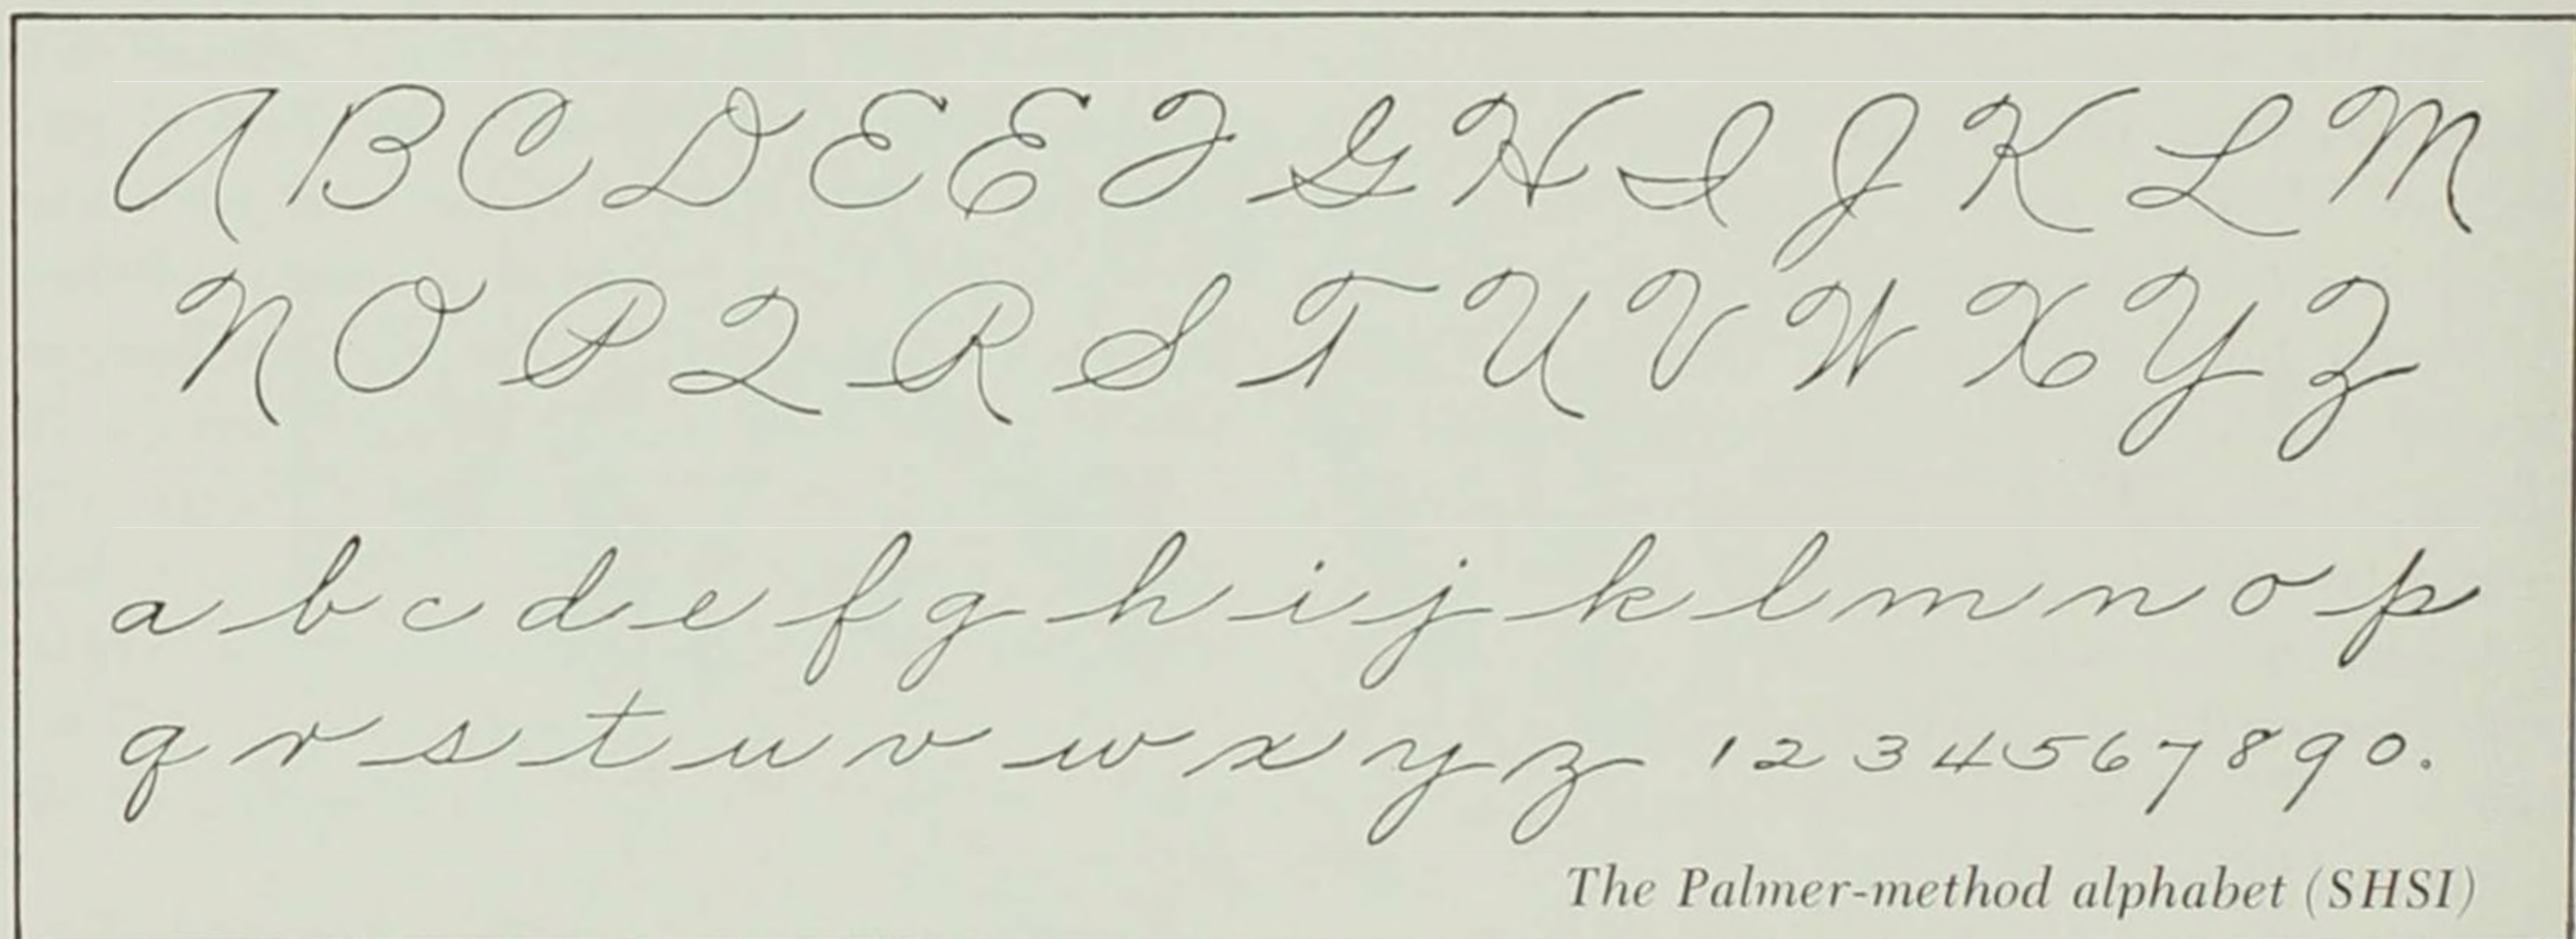 A B C D E E F G H I J K L M
N O P Q R S T U V W X Y Z
a b c d e f g h i j k l m n o p
q r s t u v w x y z 1 2 3 4 5 6 7 8 9 0.
The Palmer-method alphabet (SHSI)